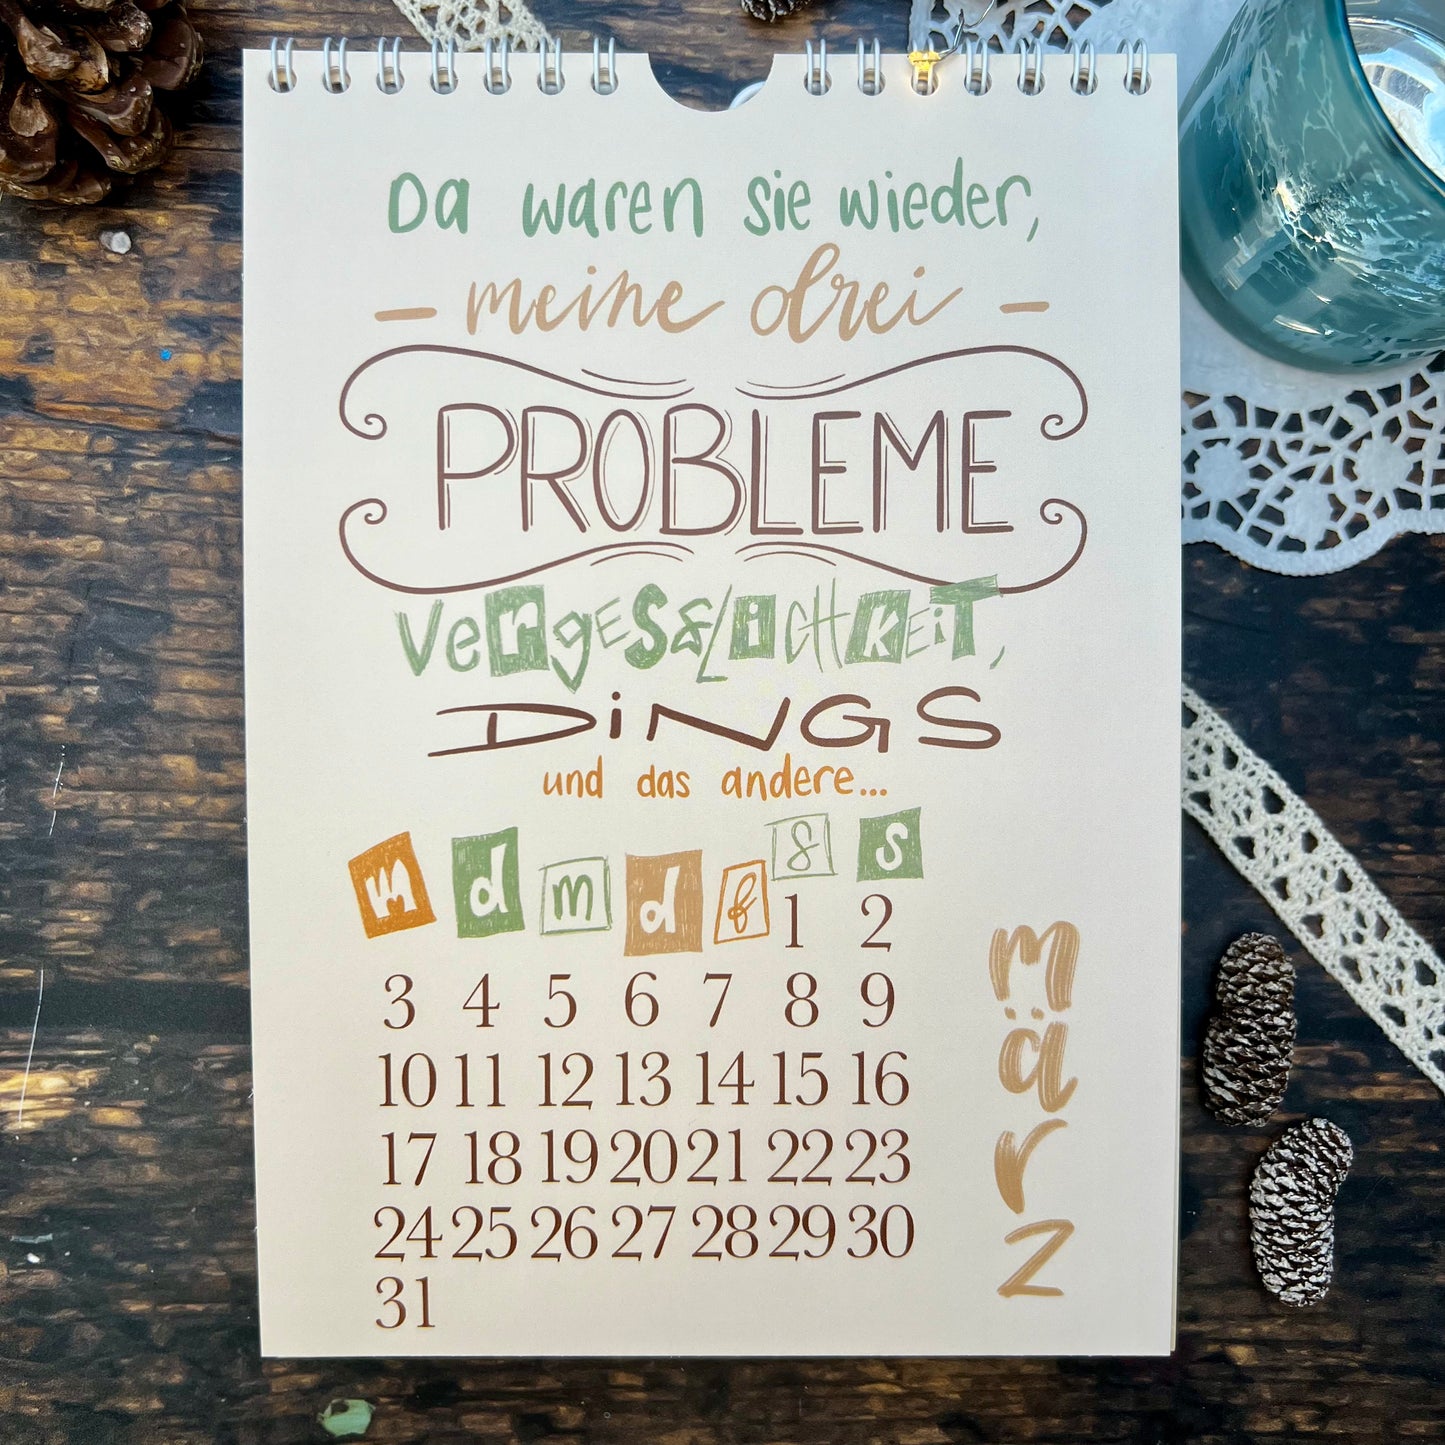 Da waren sie wieder,
- meine drei -
PROBLEME
VergESSLiCHKEiT,
DiNGS
und das andere...
m d m d f s s
1 2
3 4 5 6 7 8 9
10 11 12 13 14 15 16
17 18 19 20 21 22 23
24 25 26 27 28 29 30
31
märz